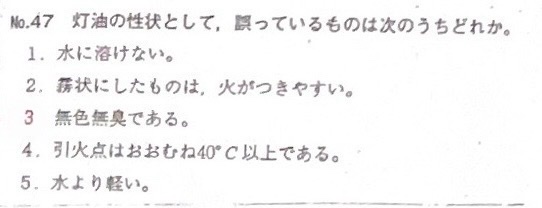 No.47 灯油の性状として，誤っているものは次のうちどれか。
1．水に溶けない。
2．霧状にしたものは，火がつきやすい。
3 無色無臭である。
4．引火点はおおむね40°C以上である。
5．水より軽い。